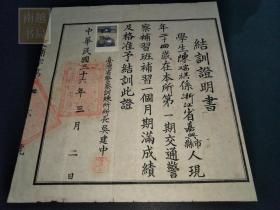 結訓證明書
學生陳瑞祺係浙江省嘉興縣市人現
年二十四歲在本所第一期交通警
察補習班補習一個月期滿成績
及格准予結訓此證
臺灣省警察訓練所所長吳建中
中華民國三十六年三月二日